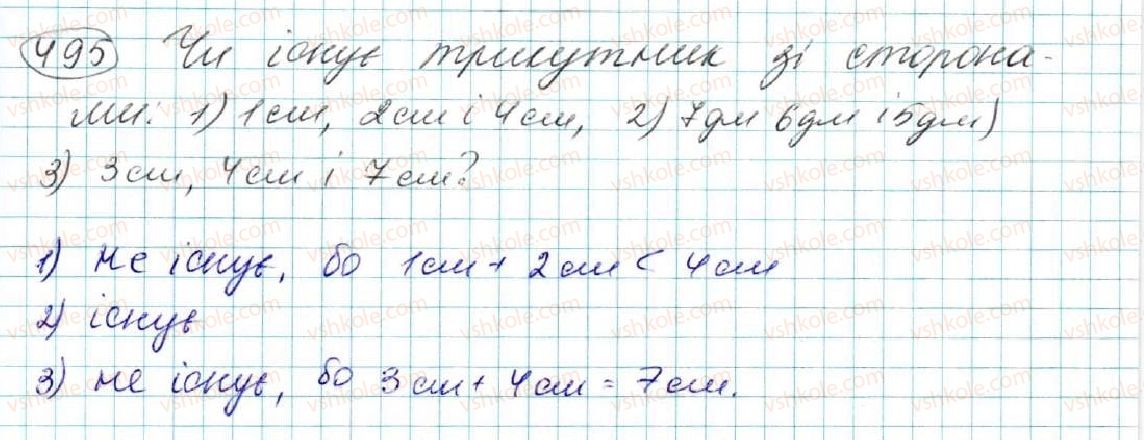 495 Чи існує трикутник зі сторона-
ми: 1) 1см, 2см і 4см, 2) 7дм 6дм і 5дм)
3) 3см, 4см і 7см?
1) не існує, бо 1см + 2см < 4см
2) існує
3) не існує, бо 3см + 4см = 7см.